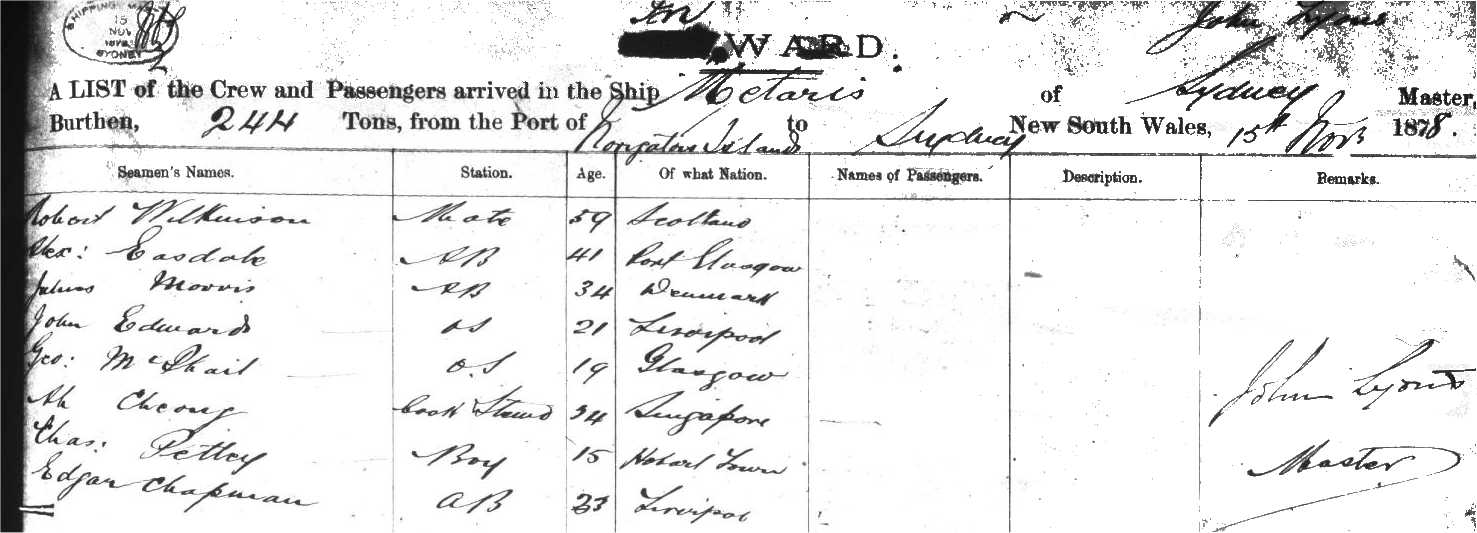 SHIPPING MASTER 15 NOV 1878 SYDNEY
For
WARD.
John Lyons
A LIST of the Crew and Passengers arrived in the Ship Metaris of Sydney Master,
Burthen, 244 Tons, from the Port of Navigators Islands to Sydney New South Wales, 15th Novr 1878.
Seamen's Names. Station. Age. Of what Nation. Names of Passengers. Description. Remarks.
Robert Wilkinson Mate 59 Scotland
Alex: Easdale AB 41 Port Glasgow
Julius Morris AB 34 Denmark
John Edwards OS 21 Liverpool
Geo: McPhail O.S 19 Glasgow
Ah Cheong Cook Stewd 34 Singapore
Chas: Pettey Boy 15 Hobart Town
Edgar Chapman AB 23 Liverpol
John Lyons
Master